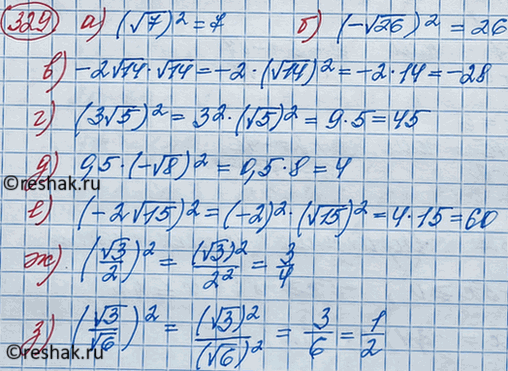 329 а) (√7)² = 7 б) (-√26)² = 26
в) -2√14·√14 = -2·(√14)² = -2·14 = -28
г) (3√5)² = 3²·(√5)² = 9·5 = 45
д) 0,5·(-√8)² = 0,5·8 = 4
©reshak.ru
е) (-2√15)² = (-2)²·(√15)² = 4·15 = 60
ж) (√3/2)² = (√3)²/2² = 3/4
з) (√3/√6)² = (√3)²/(√6)² = 3/6 = 1/2
©reshak.ru